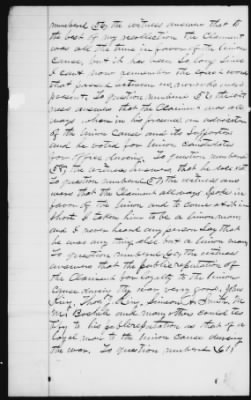 numbered 56 the witness answers that to
the best of my recollection the Claimant
was all the time in favor of the Union
Cause, but it has been so long since
I can't now remember the words
that passed between
present, To question numbered 57 the wit-
ness answers that the Claimant was all-
ways when in his presence an advocator
of the Union Cause and its Supporters
and he voted for Union Candidates
for office during. To question numbered
58, the witness answers that he did, no
To question numbered 59 the witness ans-
wers that the Claimant allways spoke in
favor of the Union and to come at it in
short I taken him to be a Union man
and I never heard any person say that
he was any thing else but a Union man
To question numbered 60, the witness
answers that the public reputation of
the Claimant for loyalty to the Union
Cause during the war very good, John
King, Thos J King, Smith, M
and many others could tes-
tify to his reputation as that of a
loyal man to the Union Cause during
the war. To question numbered 61,